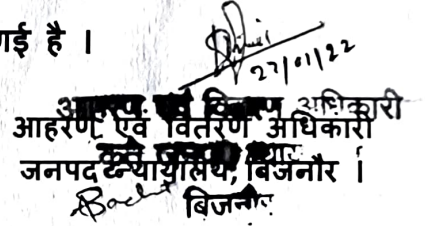 गई है ।
27/01/22
आहरण एवं वितरण अधिकारी
आहरण एवं वितरण अधिकारी
जनपद न्यायालय, बिजनौर ।
बिजनौर